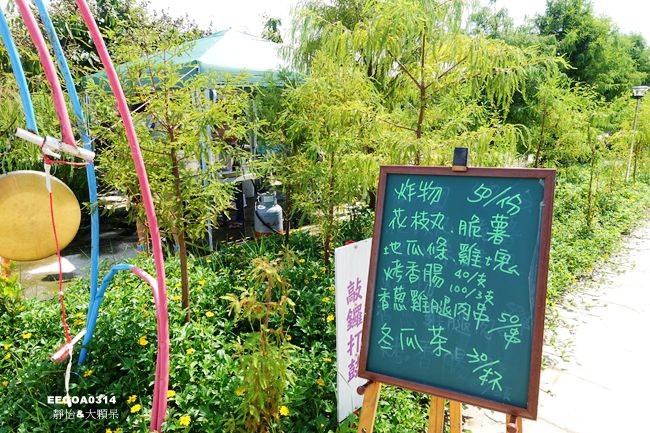 炸物 50/份
花枝丸、脆薯
地瓜條、雞塊
烤香腸 40/支
100/3支
香蔥雞腿肉串 50/串
冬瓜茶 30/杯
敲鑼打鼓
EEOOA0314
靜怡&大顆呆